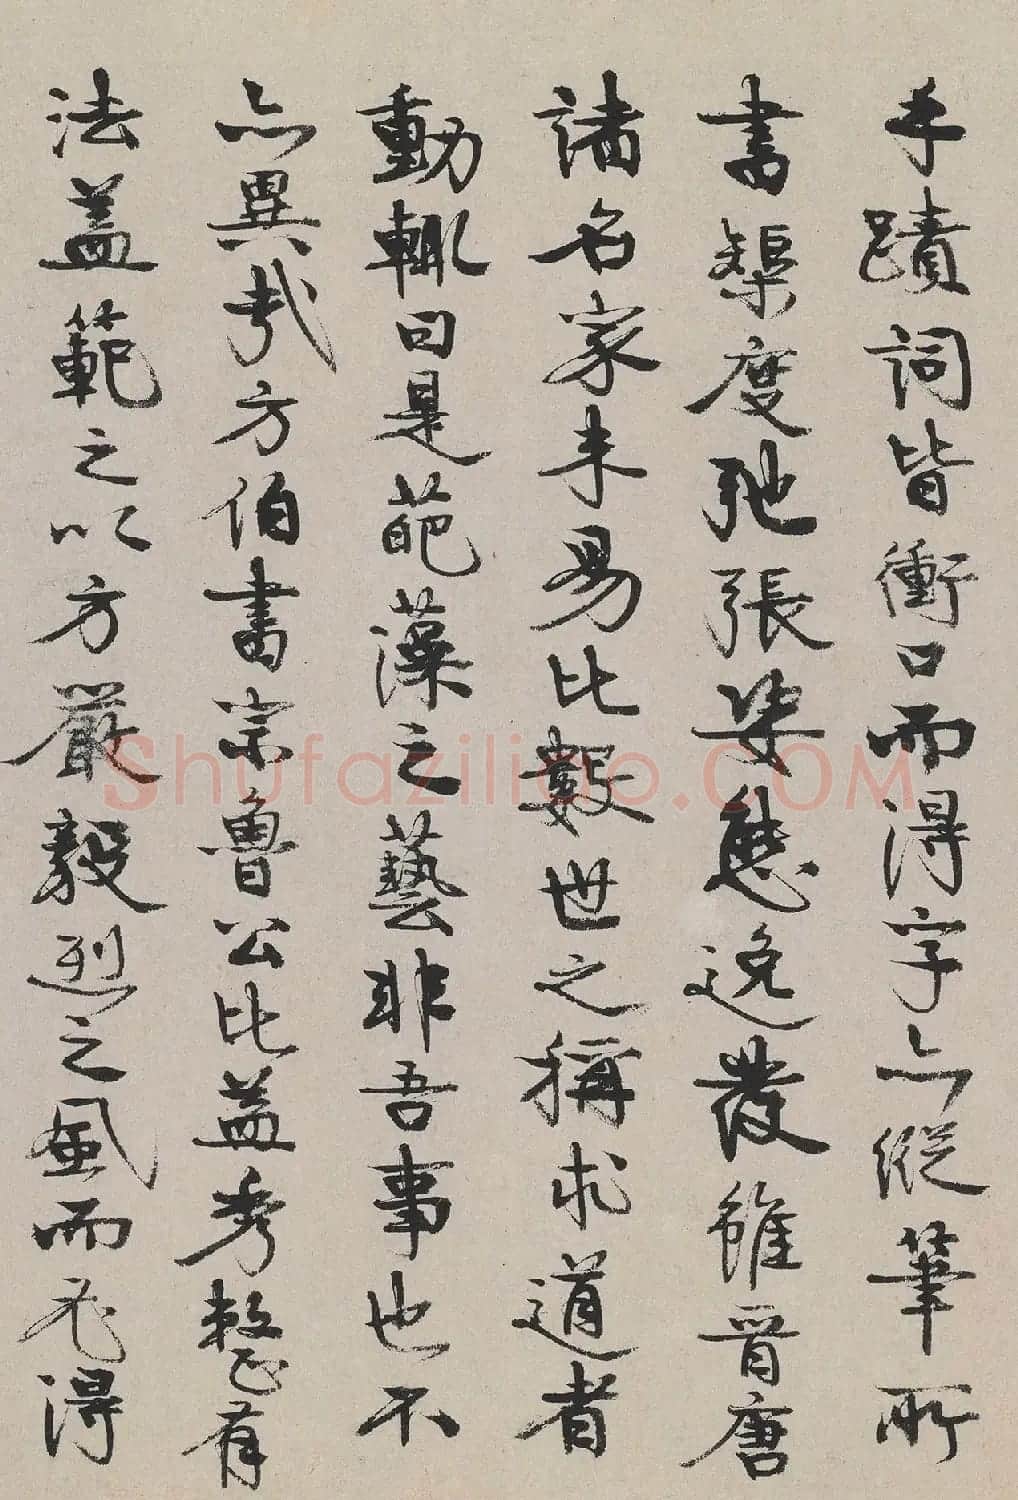 手蹟詞皆衝口而得字亦縱筆所
書榘度弛張姿態逸發雖晉唐
諸名家未易比數世之稱求道者
動輒曰是葩藻之藝非吾事也不
亦異哉方伯書宗魯公比益秀整有
法盖範之以方嚴毅烈之風而後得
Shufaziliao.COM